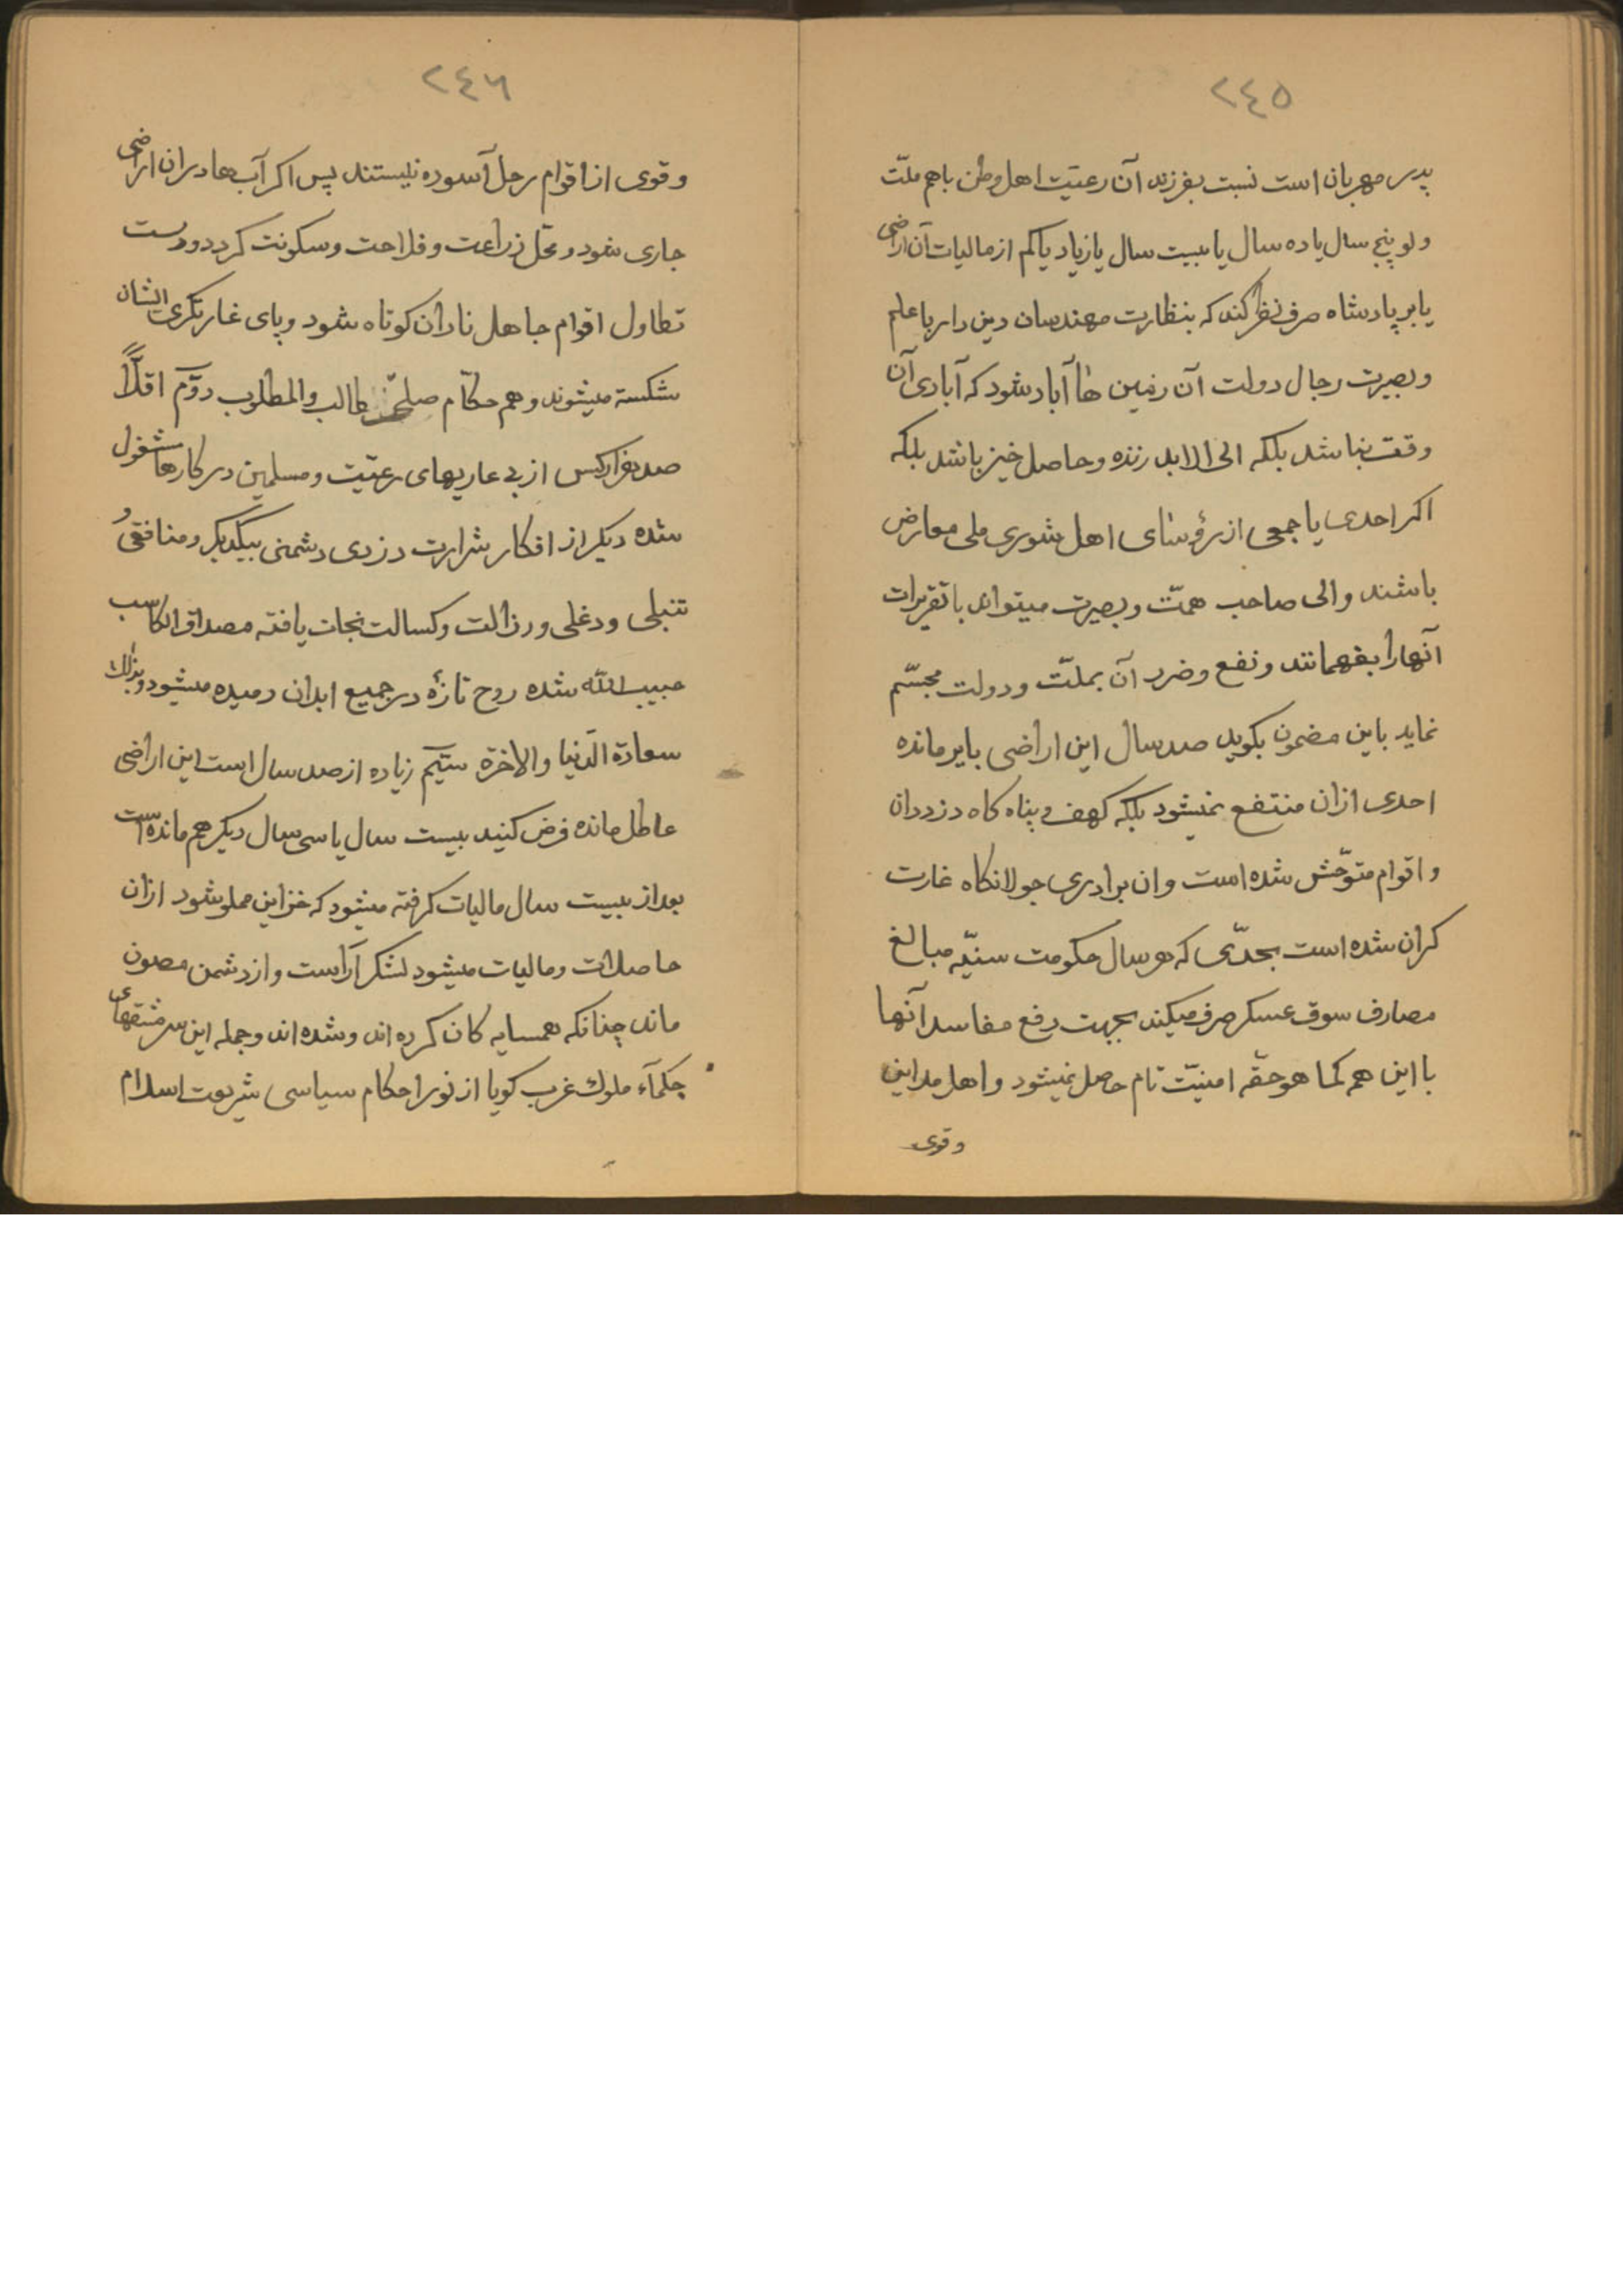 ٢٤٥
پدر مهربان است نسبت بفرزند آن رعیّت اهل وطن باهم ملّت
ولو پنج سال یا ده سال یا بیست سال یا زیاد یا کم از مالیات آن اراضی
بایر پادشاه صرف نظر کند که بنظارت مهندسان دین دار با علم
وبصیرت رجال دولت آن زمین ها آباد شود که آبادی آن
وقت نباشد بلکه الی الابد زنده وحاصل خیز باشد بلکه
اکر احدی یا جمعی از رؤسای اهل شوری ملی معارض
باشند والی صاحب همّت وبصیرت میتواند با تقریرات
آنها را بفهمانند ونفع وضرر آن بملّت ودولت مجسّم
نماید باین مضمون بکوید صد سال این اراضی بایر مانده
احدی ازان منتفع نمیشود بلکه کهف و پناه کاه دزدان
واقوام متوحّش شده است وان برادری جولانکاه غارت
کران شده است بحدّی که هر سال حکومت سنیّه مبالغ
مصارف سوق عسکر صرف میکند بجهت رفع مفاسد آنها
با این هم کما هو حقّه امنیّت تام حاصل نمیشود واهل مداین
وقوی
٢٤٦
وقوی از اقوام رحل آسوده نیستند پس اکر آب ها دران اراضی
جاری شود ومحل زراعت وفلاحت وسکونت کردد ودست
تطاول اقوام جاهل نادان کوتاه شود وپای غارتکری ایشان
شکسته میشوند وهم حکّام طالب والمطلوب دوّم اقلّاً
صد هزار کس از بی عاریهای رعیّت ومسلمین در کارها مشغول
شده دیکر از افکار شرارت دزدی دشمنی بیکدیکر ومنافقی و
تنبلی ودغلی ورذالت وکسالت نجات یافته مصداق الکاسب
حبیب الله شده روح تازهٔ در جمیع ابدان دمیده میشود وبذلك
سعادة الدنیا والاخرة سیّم زیاده از صد سال است این اراضی
عاطل مانده فرض کنید بیست سال یا سی سال دیکر هم مانده است
بعد از بیست سال مالیات کرفته میشود که خزاین مملو شود ازان
حاصلات ومالیات میشود لشکر آراست واز دشمن مصون
ماند چنانکه همسایه کان کرده اند وشده اند وجمله این سرمشقهای
حکمآء ملوك غرب کویا از نور احکام سیاسی شریعت اسلام